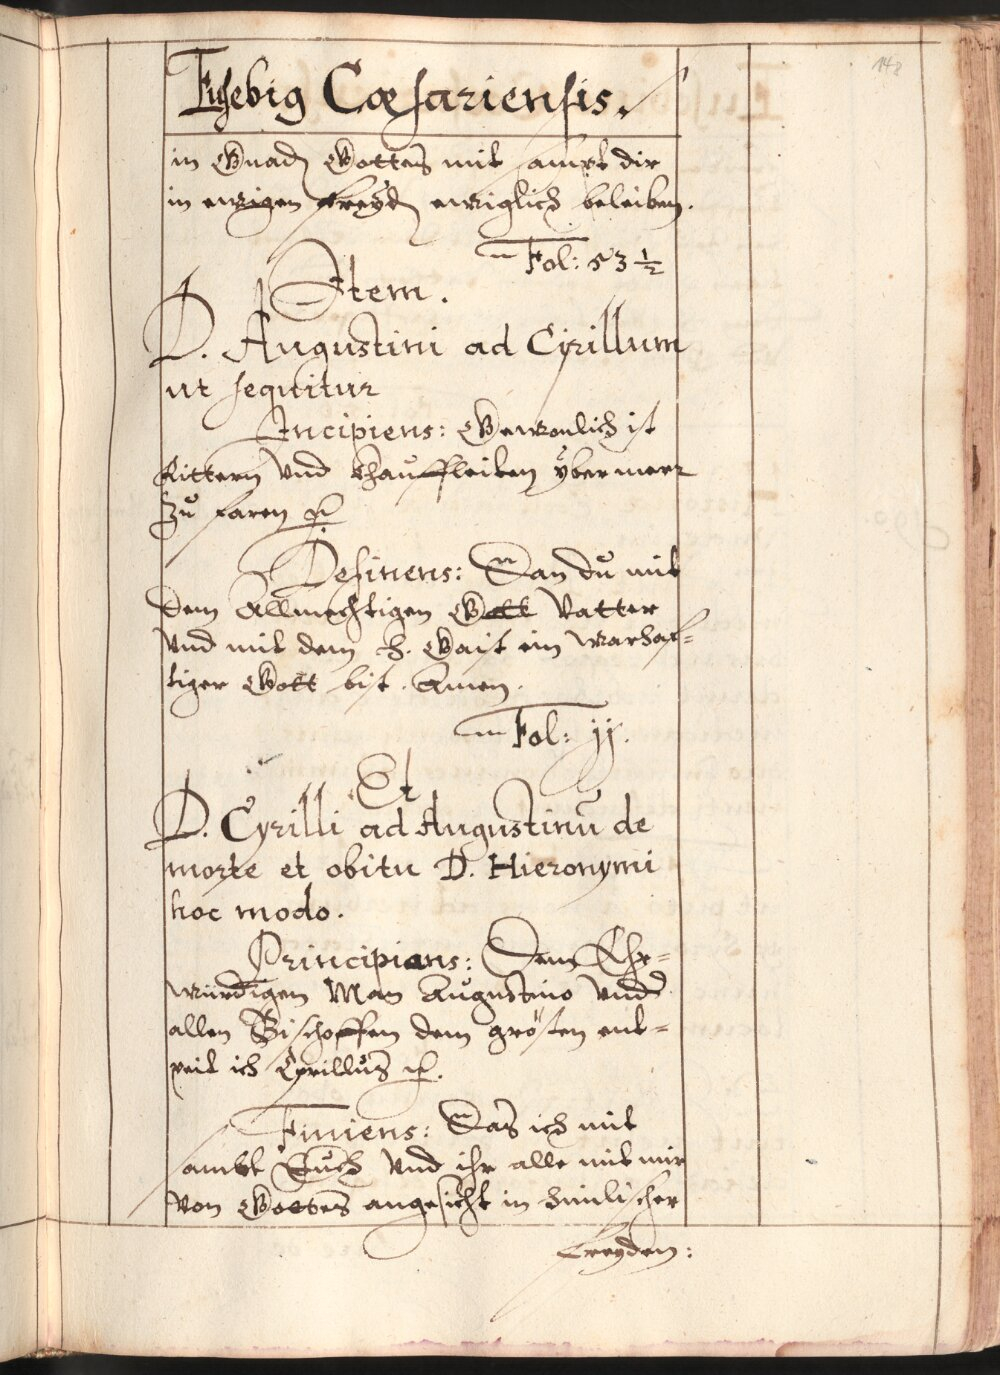 148
Eusebig Cæsariensis.
in Gnad Gottes mit sampt dir
in ewigen freyd ewiglich beleiben.
Fol: 53 ½
Item.
D. Augustini ad Cirillum
ut sequitur
Incipiens: Gewonlich ist
Rittern Vnd Khauffleiten yber meer
Zu faren
Desinens: Dan du mit
dem Allmechtigen Gott Vatter
Vnd mit dem H. Gaist ein warhaf=
tiger Gott bist. Amen.
Fol: jj.
Et
D. Cyrilli ad Augustinū de
morte et obitu D. Hieronymi
hoc modo.
Principians: Dem Ehr=
würdigen Man Augustino Vnd
allen Bischoffen dem grösten ent=
peit ich Cyrillus
Finiens: Das ich mit
sambt Euch Vnd ihr alle mit mir
Von Gottes angesicht in himlischer
freyden: